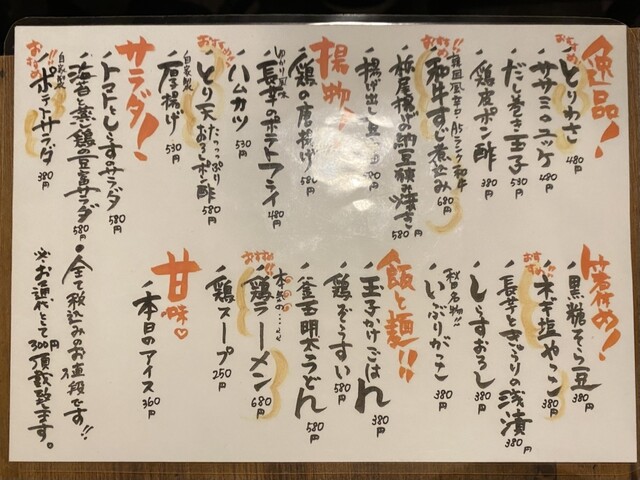 逸品!
おすすめ!!
とりわさ 480円
ササミのユッケ 480円
だし巻き玉子 530円
鶏皮ポン酢 380円
おすすめ!!
韓国風辛口・A5ランク和牛
和牛すじ煮込み 680円
栃尾揚げの納豆挟み焼き 580円
揚げ出し豆 580円
揚げ物!
鶏の唐揚げ 580円
ゆかり風味
長芋のポテトフライ 480円
ハムカツ 530円
おすすめ!!
たっっっぷり
とり天おろしポン酢 580円
自家製
厚揚げ 530円
サラダ!
トマトとしらすのサラダ 580円
自家製
海苔と蒸し鶏の豆富サラダ 580円
おすすめ!!
ポテトサラダ 380円
箸休め!
黒糖そら豆 380円
おすすめ!!
ネギ塩やっこ 380円
長芋ときゅうりの浅漬 380円
しらすおろし 380円
秋田名物!!
いぶりがっこ 380円
飯と麺!!
玉子かけごはん 380円
鶏ぞうすい 580円
釜玉明太うどん 580円
おすすめ!!
本気の
鶏ラーメン 680円
鶏スープ 250円
甘味♡
本日のアイス 360円
全て税込みのお値段です!!
※お通し代として300円頂戴致します。